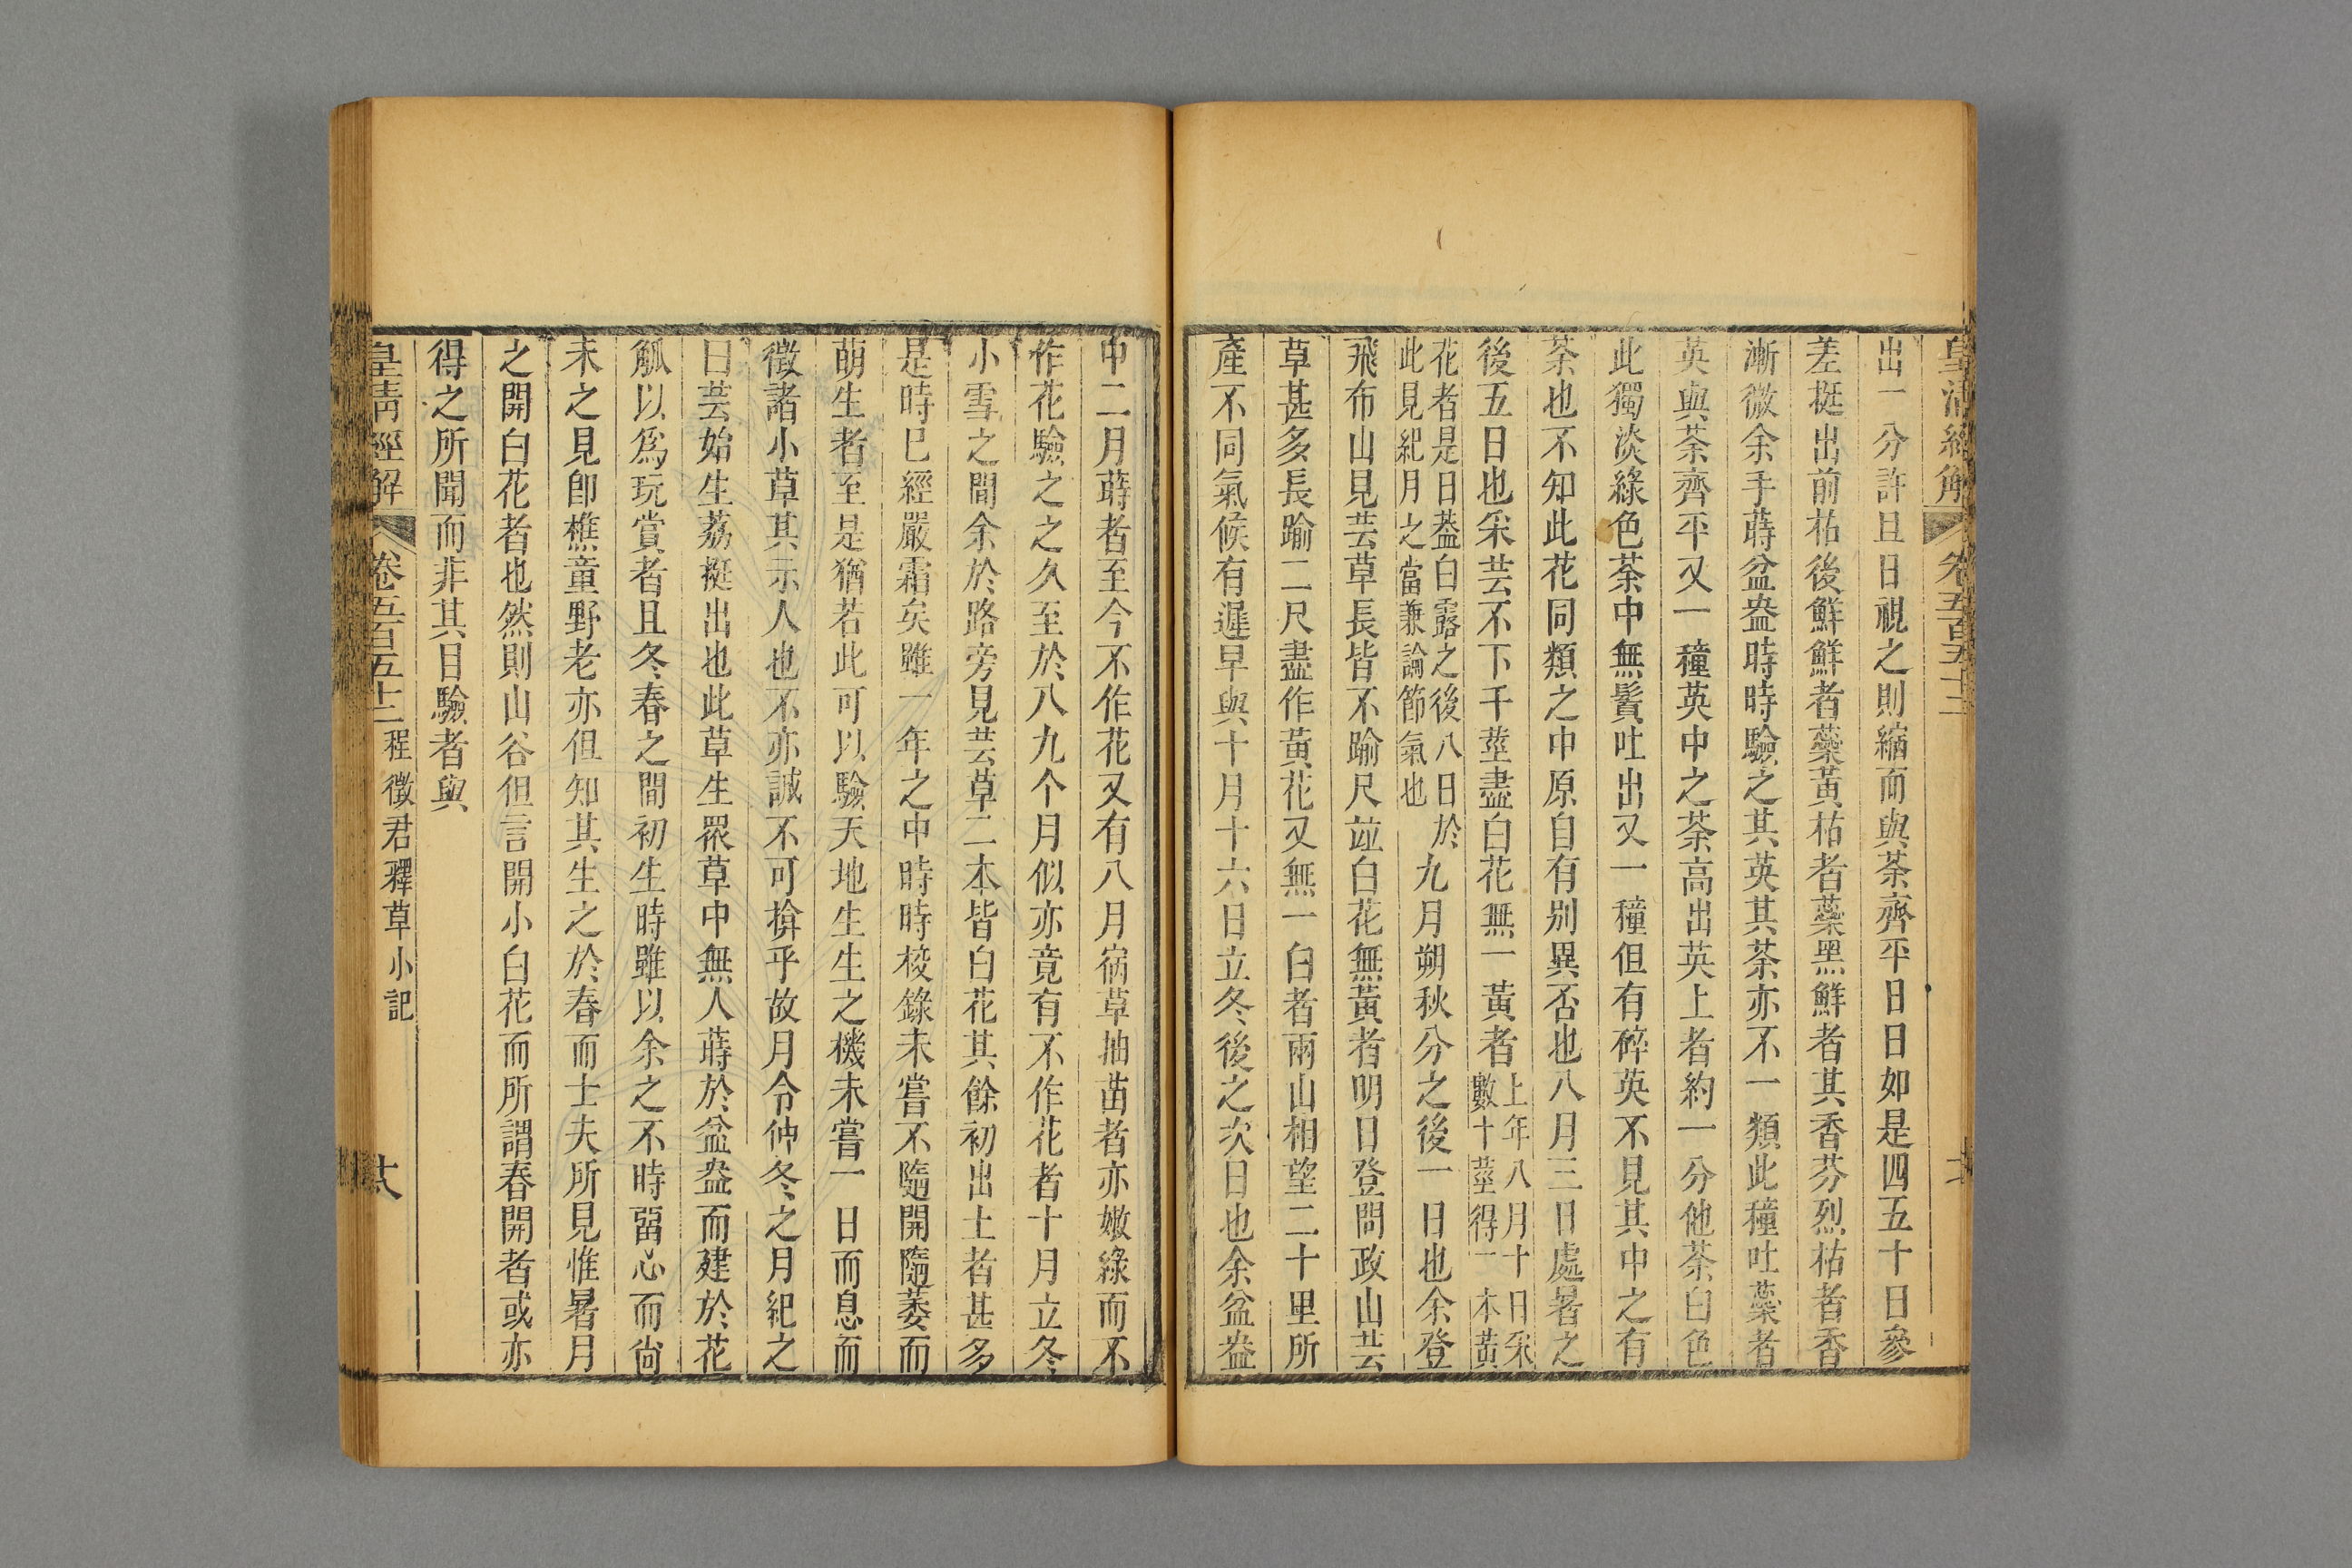 皇清經解 卷五百五十三
出一分許且日視之則縮而與荼齊平日日如是四五十日參
差挺出前枯後鮮鮮者蘂黃枯者蘂黑鮮者其香芬烈枯者香
漸微余手蒔盆盎時時驗之其英其荼亦不一類此穜吐蘂者
英與荼齊平又一穜英中之荼高出英上者約一分他荼白色
此獨淡綠色荼中無鬚吐出又一穜但有碎英不見其中之有
荼也不知此花同類之中原自有别異否也八月三日處暑之
後五日也采芸不下千莖盡白花無一黃者上年八月十日采數十莖得一本黃
花者是日葢白露之後八日於此見紀月之當兼論節氣也九月朔秋分之後一日也余登
飛布山見芸草長皆不踰尺竝白花無黃者明日登問政山芸
草甚多長踰二尺盡作黃花又無一白者兩山相望二十里所
產不同氣候有遲早與十月十六日立冬後之次日也余盆盎
中二月蒔者至今不作花又有八月宿草抽苗者亦嫩綠而不
作花驗之之久至於八九个月似亦竟有不作花者十月立冬
小雪之間余於路旁見芸草二本皆白花其餘初出土者甚多
是時巳經嚴霜矣雖一年之中時時梭錄未嘗不隨開隨萎而
萌生者至是猶若此可以驗天地生生之機未嘗一日而息而
徵諸小草其示人也不亦誠不可揜乎故月令仲冬之月紀之
曰芸始生荔挺出也此草生眾草中無人蒔於盆盎而建於花
觚以爲玩賞者且冬春之間初生時雖以余之不時畱心而尙
未之見卽樵童野老亦但知其生之於春而士夫所見惟暑月
之開白花者也然則山谷但言開小白花而所謂春開者或亦
得之所聞而非其目驗者與
皇清經解 卷五百五十三 程徵君釋草小記 大